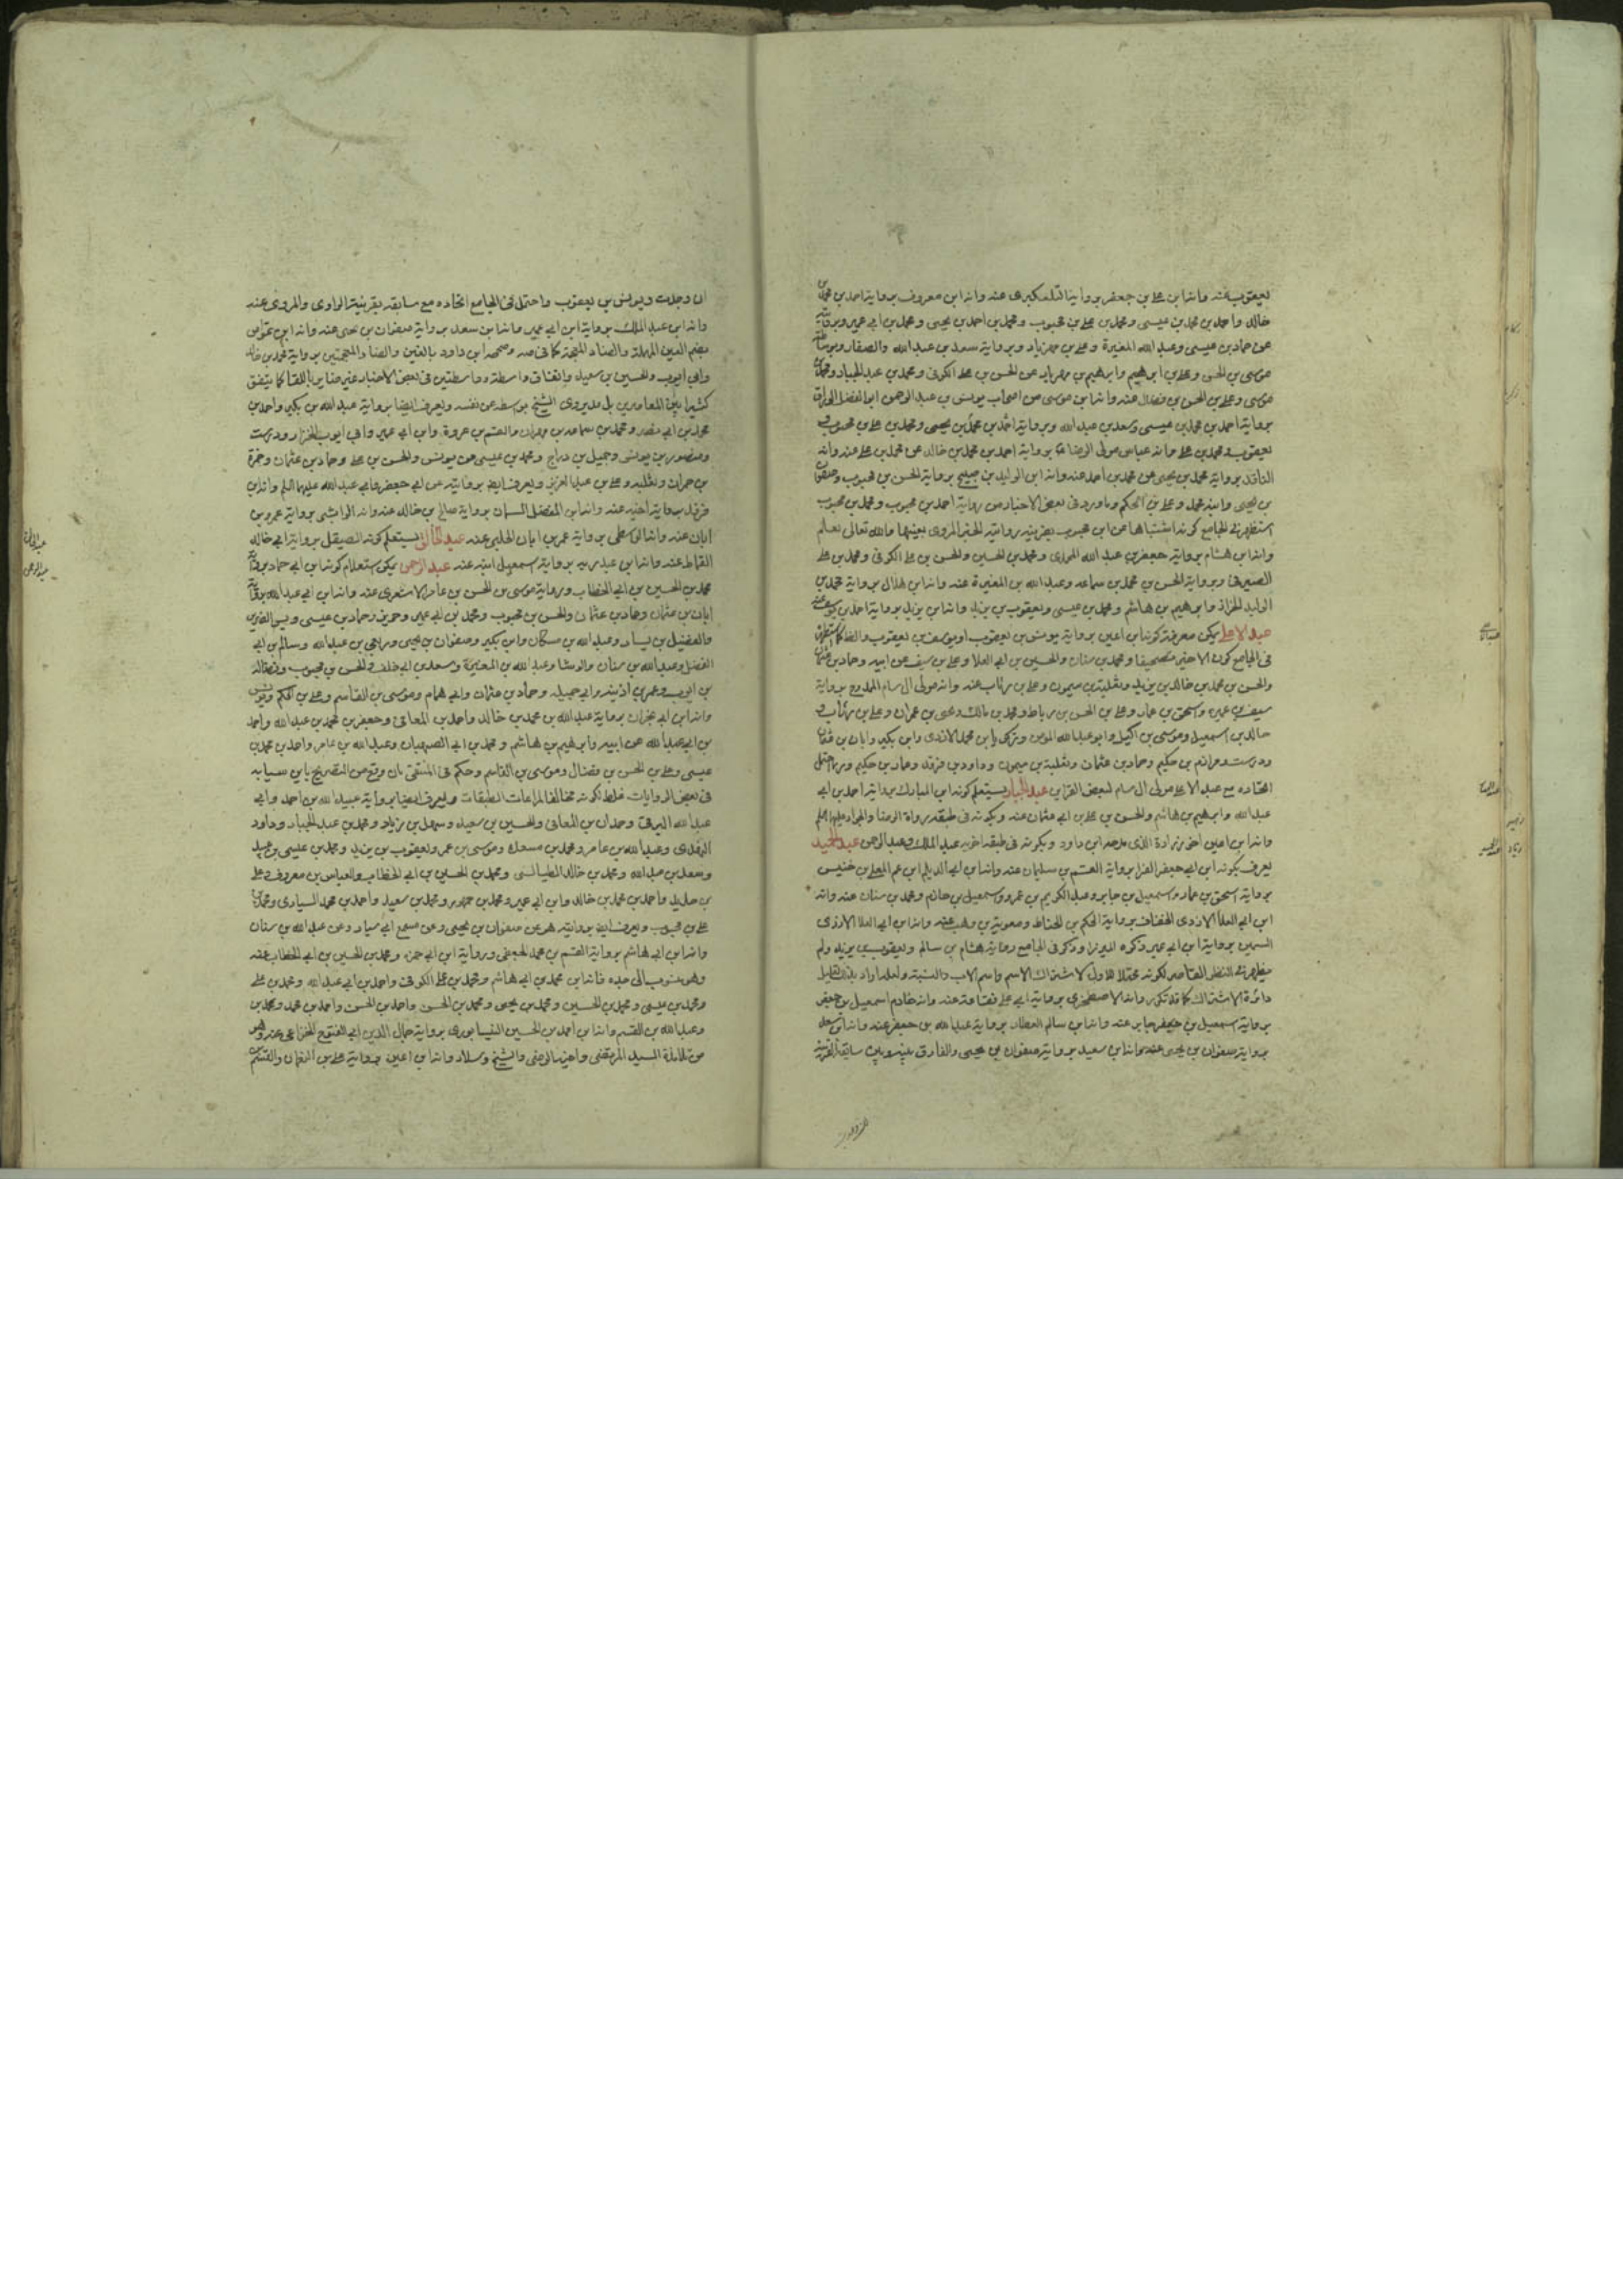 يعقوب عنه وانه ابن علي بن جعفر برواية التلعكبري عنه وانه ابن معروف برواية احمد بن محمد بن
خالد واحمد بن محمد بن عيسى ومحمد بن علي بن محبوب ومحمد بن احمد بن يحيى ومحمد بن ابي عمير وبروايته
عن حماد بن عيسى وعبد الله المغيرة وعلي بن مهزيار وبرواية سعد بن عبد الله والصفار وبوساطة
موسى بن الحسن وعلي بن ابرهيم وابرهيم بن مهزيار عن الحسن بن علي الكوفي ومحمد بن عبد الجبار ومحمد بن
موسى وعلي بن الحسن بن فضال عنه وانه ابن موسى من اصحاب يونس بن عبد الرحمن ابو الفضل الوراق
برواية احمد بن محمد بن عيسى وسعد بن عبد الله وبرواية احمد بن محمد بن يحيى ومحمد بن علي بن محبوب و
يعقوب ومحمد بن علي وانه عباس مولى الرضا ع برواية احمد بن محمد بن خالد عن محمد بن علي عنه وانه
الناقد برواية محمد بن يحيى عن محمد بن احمد عنه وانه ابن الوليد بن صبيح برواية الحسن بن محبوب وصفوان
بن يحيى وابنه محمد وعلي بن الحكم وما ورد في بعض الاخبار من رواية احمد بن محبوب ومحمد بن محبوب
استظهر في الجامع كونه اشتباها عن ابن محبوب بقرينة روايته الخبر المروي بعينها والله تعالى يعلم
وانه ابن هشام برواية جعفر بن عبد الله المحمدي ومحمد بن الحسين والحسن بن علي الكوفي ومحمد بن علي
الصيرفي وبرواية الحسن بن محمد بن سماعه وعبد الله بن المغيرة عنه وانه ابن هلال برواية محمد بن
الوليد الخزاز وابرهيم بن هاشم ومحمد بن عيسى ويعقوب بن يزيد وانه ابن يزيد برواية احمد بن يوسف عنه
عبد الاعلى يمكن معرفة كونه ابن اعين برواية يونس بن يعقوب او يوسف بن يعقوب والظ كما استظهر
في الجامع كون الاخير تصحيفا ومحمد بن سنان والحسين بن ابي العلا وعلي بن سيف عن ابيه وحماد بن عثمان
والحسن بن محمد بن خالد بن يزيد وثعلبة بن ميمون وعلي بن رئاب عنه وانه مولى ال سام الممدوح برواية
سيف بن عميره واسحق بن عمار وعلي بن الحسن بن رباط ومحمد بن مالك ويحيى بن عمران وعلي بن رئاب و
خالد بن اسمعيل وموسى بن اكيل وابو عبد الله المومن وتركي وابن محمد الازدي وابن بكير وابان بن عثمان
ودرست ومرازم بن حكيم وحماد بن عثمان وثعلبة بن ميمون وداود بن فرقد وعمار بن حكيم وربما احتمل
اتحاده مع عبد الاعلى مولى ال سام لبعض القراين عبد الجبار يستعلم كونه ابن المبارك برواية احمد بن ابي
عبد الله وابرهيم بن هاشم والحسن بن علي بن ابي عثمان عنه وبكونه في طبقة رواة الرضا والجواد عليهما السلم
وانه ابن اعين اخو زرارة الذي مدحه ابن داود وبكونه في طبقة اخويه عبد الملك وعبد الرحمن عبد الحميد
يعرف بكونه ابن ابي جعفر الفرا برواية القسم بن سليمان عنه وانه ابن ابي الديلم ابن عم المعلى بن خنيس
برواية اسحق بن عمار واسمعيل بن جابر وعبد الكريم بن عمرو واسمعيل بن حاتم ومحمد بن سنان عنه وانه
ابن ابي العلا الازدي الخفاف برواية الحكم بن الحناط ومعوية بن وهب عنه وانه ابن ابي العلا الازدي
السمين برواية ابن ابي عمير وذكره الميرزا وذكر في الجامع رواية هشام بن سالم ويعقوب بن يزيد ولم
يظهر في النظر القاصر لكونه محتملا للاول لاشتراك الاسم واسم الاب والنسبة ولعله اراد بذلك تقليل
دائرة الاشتراك كما قد تكرر وانه الاصطخري برواية ابي علي نقتاحة عنه وانه خادم اسمعيل بن جعفر
برواية اسمعيل بن جعفر جابر عنه وانه ابن سالم العطار برواية عبد الله بن جعفر عنه وانه ابن سعد
برواية صفوان بن يحيى عنه وانه ابن سعيد برواية صفوان بن يحيى والفارق بينه وبين سابقه القرينة
ان وجدت ويونس بن يعقوب واحتمل في الجامع اتحاده مع سابقه بقرينة الراوي والمروي عنه
وانه ابن عبد الملك برواية ابن ابي عمير وانه ابن سعد برواية صفوان بن يحيى عنه وانه ابن عواض
بضم العين المهملة والضاد المعجمة كما في صه وصححه ابن داود بالغين والضاد المعجمتين برواية محمد بن خالد
وابي ايوب والحسين بن سعيد واتفاق واسطة وواسطتين في بعض الاخبار غير مناير باللقا كما يتفق
كثيرا بين المعاصرين بل قد يروي الشيخ بواسطه عن نفسه ويعرف ايضا برواية عبد الله بن بكير واحمد بن
محمد بن ابي نصر ومحمد بن سماعه بن مهران والقسم بن عروة وابن ابي عمير وابي ايوب الخزاز ودرست
ومنصور بن يونس وجميل بن دراج ومحمد بن عيسى عن يونس والحسن بن علي وحماد بن عثمان وحمزة
بن حمران وثعلبه وعلي بن عبد العزيز ويعرف ايض بروايته عن ابي جعفر وابي عبد الله عليهما السلم وانه ابن
فرقد برواية اخيه عنه وانه ابن المفضل السمان برواية صالح بن خالد عنه وانه الوابشي برواية عمرو بن
ابان عنه وانه الوسطي برواية عمر بن ابان الحلبي عنه عبد الخالق يستعلم كونه الصيقل برواية ابي خالد
القماط عنه وانه ابن عبد ربه برواية اسمعيل ابنه عنه عبد الرحمن يمكن استعلام كونه ابن ابي حماد برواية
محمد بن الحسين بن ابي الخطاب وبرواية موسى بن الحسن بن عامر الاشعري عنه وانه ابن ابي عبد الله برواية
ابان بن عثمان وحماد بن عثمان والحسن بن محبوب ومحمد بن ابي عمير وحريز وحماد بن عيسى وبيس الضرير
والفضيل بن يسار وعبد الله بن مسكان وابن بكير وصفوان بن يحيى وربعي بن عبد الله وسالم بن ابي
الفضل وعبد الله بن سنان والوشا وعبد الله بن المغيرة وسعد بن ابي خلف والحسن بن محبوب وفضالة
بن ايوب وعمر بن اذينه وابي جميله وحماد بن عثمان وابي همام وموسى بن القاسم وعلي بن الحكم ويونس
وانه ابن ابي نجران برواية عبد الله بن محمد بن خالد واحمد بن المعافى وجعفر بن محمد بن عبد الله واحمد
بن ابي عبد الله عن ابيه وابرهيم بن هاشم ومحمد بن ابي الصهبان وعبد الله بن عامر واحمد بن محمد بن
عيسى وعلي بن الحسن بن فضال وموسى بن القاسم وحكم في المنتقى بان وقع من التصريح بابن سيابه
في بعض الروايات غلط لكونه مخالفا لمراعات الطبقات ويعرف ايضا برواية عبيد الله بن احمد وابي
عبد الله البرقي وحمدان بن المعافى والحسين بن سعيد وسهل بن زياد ومحمد بن عبد الجبار وداود
النهدي وعبد الله بن عامر ومحمد بن مسعود وموسى بن عمر ويعقوب بن يزيد ومحمد بن عيسى بن عبيد
وسعد بن عبد الله ومحمد بن خالد الطيالسي ومحمد بن الحسين بن ابي الخطاب والعباس بن معروف وعلي
بن حديد واحمد بن محمد بن خالد وابن ابي عمير ومحمد بن جمهور ومحمد بن سعيد واحمد بن محمد السياري ومحمد بن
علي بن محبوب ويعرف ايض بروايته هو عن صفوان بن يحيى وعن مسمع ابي سيار وعن عبد الله بن سنان
وانه ابن ابي هاشم برواية القسم بن محمد الجعفي وبرواية ابن ابي حمزه ومحمد بن الحسين بن ابي الخطاب عنه
وهو منسوب الى جده فانه ابن محمد بن ابي هاشم ومحمد بن علي الكوفي واحمد بن ابي عبد الله ومحمد بن علي
ومحمد بن عيسى ومحمد بن الحسين ومحمد بن يحيى ومحمد بن الحسن واحمد بن الحسن واحمد بن محمد ومحمد بن
وعبد الله بن القسم وانه ابن احمد بن الحسين النيسابوري برواية جمال الدين ابي الفتوح الخزاعي عنه وهو
من تلامذة السيد المرتضى واخيه الرضي والشيخ وسلار وانه ابن اعين برواية علي بن النعمان والقسم بن